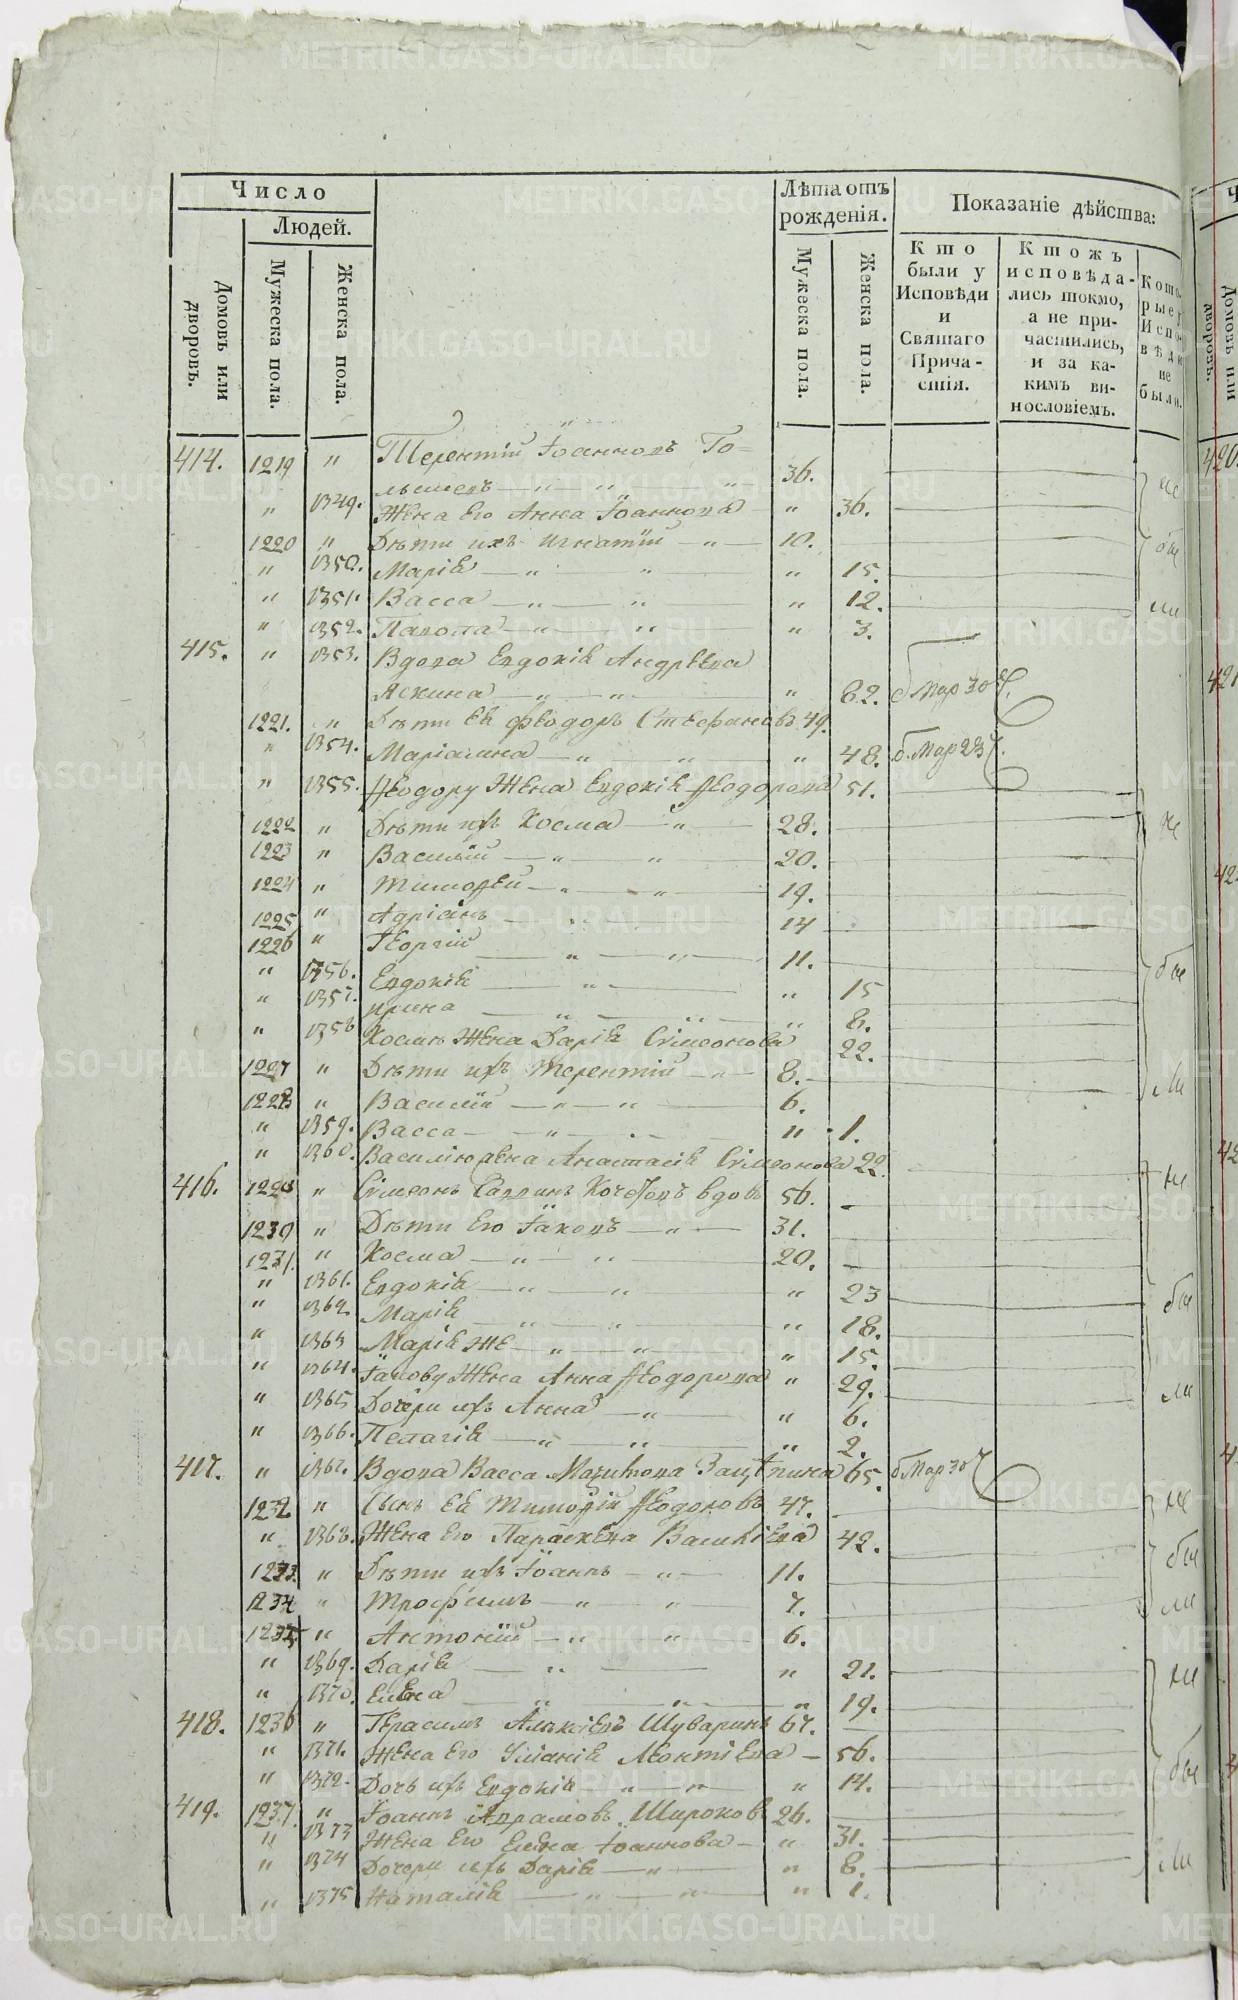 Число
Людей.
Домовъ или дворовъ.
Мужеска пола.
Женска пола.
Лѣта отъ рожденія.
Мужеска пола.
Женска пола.
Показаніе дѣйства:
Кто были у Исповѣди и Святаго Причастія.
Ктожъ исповѣдались токмо, а не причастились, и за какимъ винословіемъ.
Которые у Исповѣди не были.
414. 1219 " Терентій Іоанновъ Го-
" " 36.
" 1349. Жена Его Анна Іоаннова " 36.
1220 " Дѣти ихъ Игнатій " 10.
" 1350. Марія " " " 15.
" 1351. Васса " " " 12.
" 1352. " " " 3.
415. " 1353. Вдова Евдокія Андрѣева
Яскина " " " 62. б Мар 30 ч.
1221. " Дѣти Ея Ѳеодоръ Стефановъ 49.
" 1354. Маріамна " " " 48. б. Мар 23 ч.
" 1355. Ѳеодору Жена Евдокія Ѳеодорова 51.
1222 " Дѣти ихъ Косма " 28.
1223 " Василій " " 20.
1224 " Тимофей " " 19.
1225 " Адріанъ 14
1226 " Георгій " " 11.
" 1356. Евдокія " " 15
" 1357. Ирина " " " 8.
" 1358 Космѣ Жена Дарія Сімеонова 22.
1227 " Дѣти ихъ Терентій " 8.
1228 " Василій " " 6.
" 1359. Васса " " 1.
" 1360. Василію Жена Анастасія Сімеонова 22.
416. " Сімеонъ Саввинъ вдовъ 56.
1230 " Дѣти Его Іаковъ " 31.
1231. " Косма " " 20.
" 1361. Евдокія " " " 23
" 1362. Марія " " " 18.
" 1363 Марія же " " " 15.
" 1364. Іакову Жена Анна Ѳеодорова " 29.
" 1365 Дочери ихъ Анна " " 6.
" 1366. Пелагія " " " 2.
417. " 1367. Вдова Васса 65. б Мар 30 ч
1232 " Сынъ Ея Тимофій 47.
" 1368. Жена Его Параскева Василіева 42.
1233. " Дѣти ихъ Іоаннъ " 11.
1234 " Трофимъ " " 7.
1235 " Антоній " " 6.
" 1369. Дарія " " 21.
" 1370. Елена " " " 19.
418. 1236 " Герасимъ Алексіевъ Шуваринъ 67.
" 1371. Жена Его Уліанія Леонтіева 56.
" 1372. Дочь ихъ Евдокія " " " 14.
419. 1237. " Іоаннъ Аврамовъ Широковъ 26.
" 1373 Жена Его Елена Іоаннова " 31.
" 1374 Дочери ихъ Дарія " " 8.
" 1375 Наталія " " " 1.
не
бы
ли
не
бы
ли
не
бы
ли
не
бы
ли
не
бы
ли